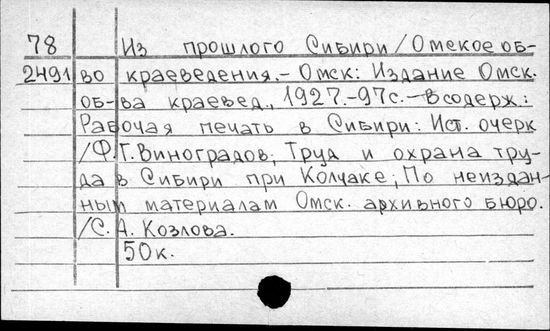 78 Из прошлого Сибири/Омское об-
2491 во краеведения.-Омск: Издание Омск.
об-ва краевед., 1927.-97с.-В содерж.:
Рабочая печать в Сибири: Ист. очерк
/Ф.Г.Виноградов; Труд и охрана тру-
да в Сибири при Колчаке; По неиздан-
ным материалам Омск. архивного бюро.
/С.А. Козлова.
50к.